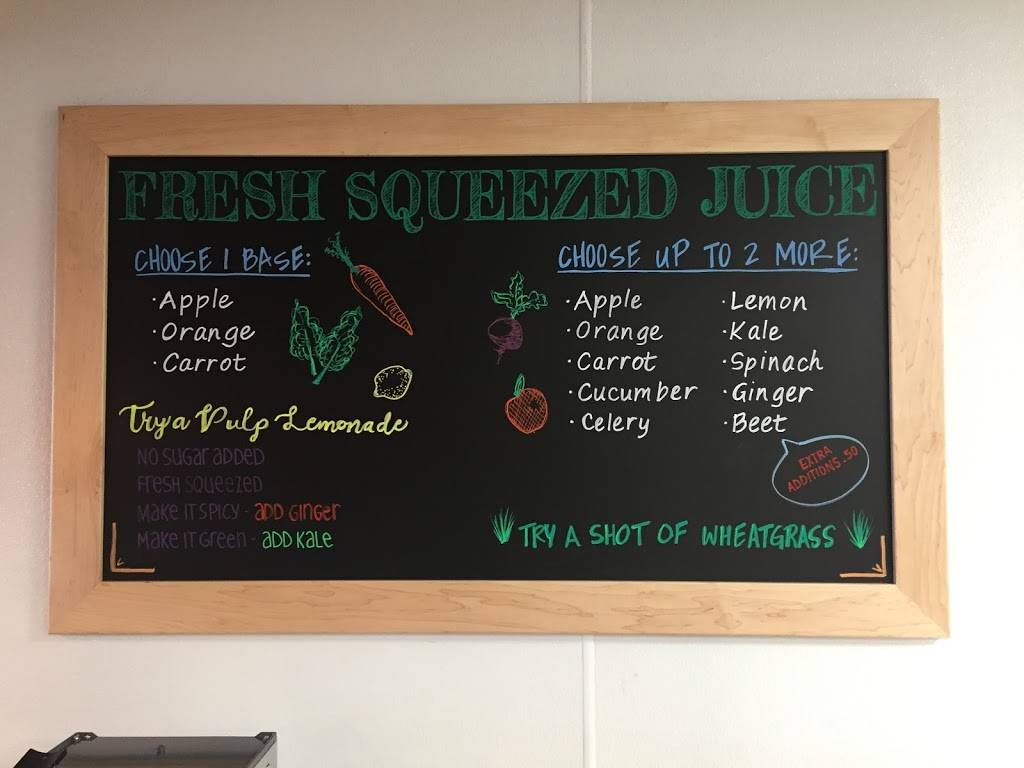 FRESH SQUEEZED JUICE
CHOOSE 1 BASE:
· Apple
· Orange
· Carrot
Try a Pulp Lemonade
NO SUGAR ADDED
FRESH SQUEEZED
MAKE IT SPICY - ADD GINGER
MAKE IT GREEN - ADD KALE
CHOOSE UP TO 2 MORE:
· Apple
· Orange
· Carrot
· Cucumber
· Celery
· Lemon
· Kale
· Spinach
· Ginger
· Beet
EXTRA
ADDITIONS .50
TRY A SHOT OF WHEATGRASS